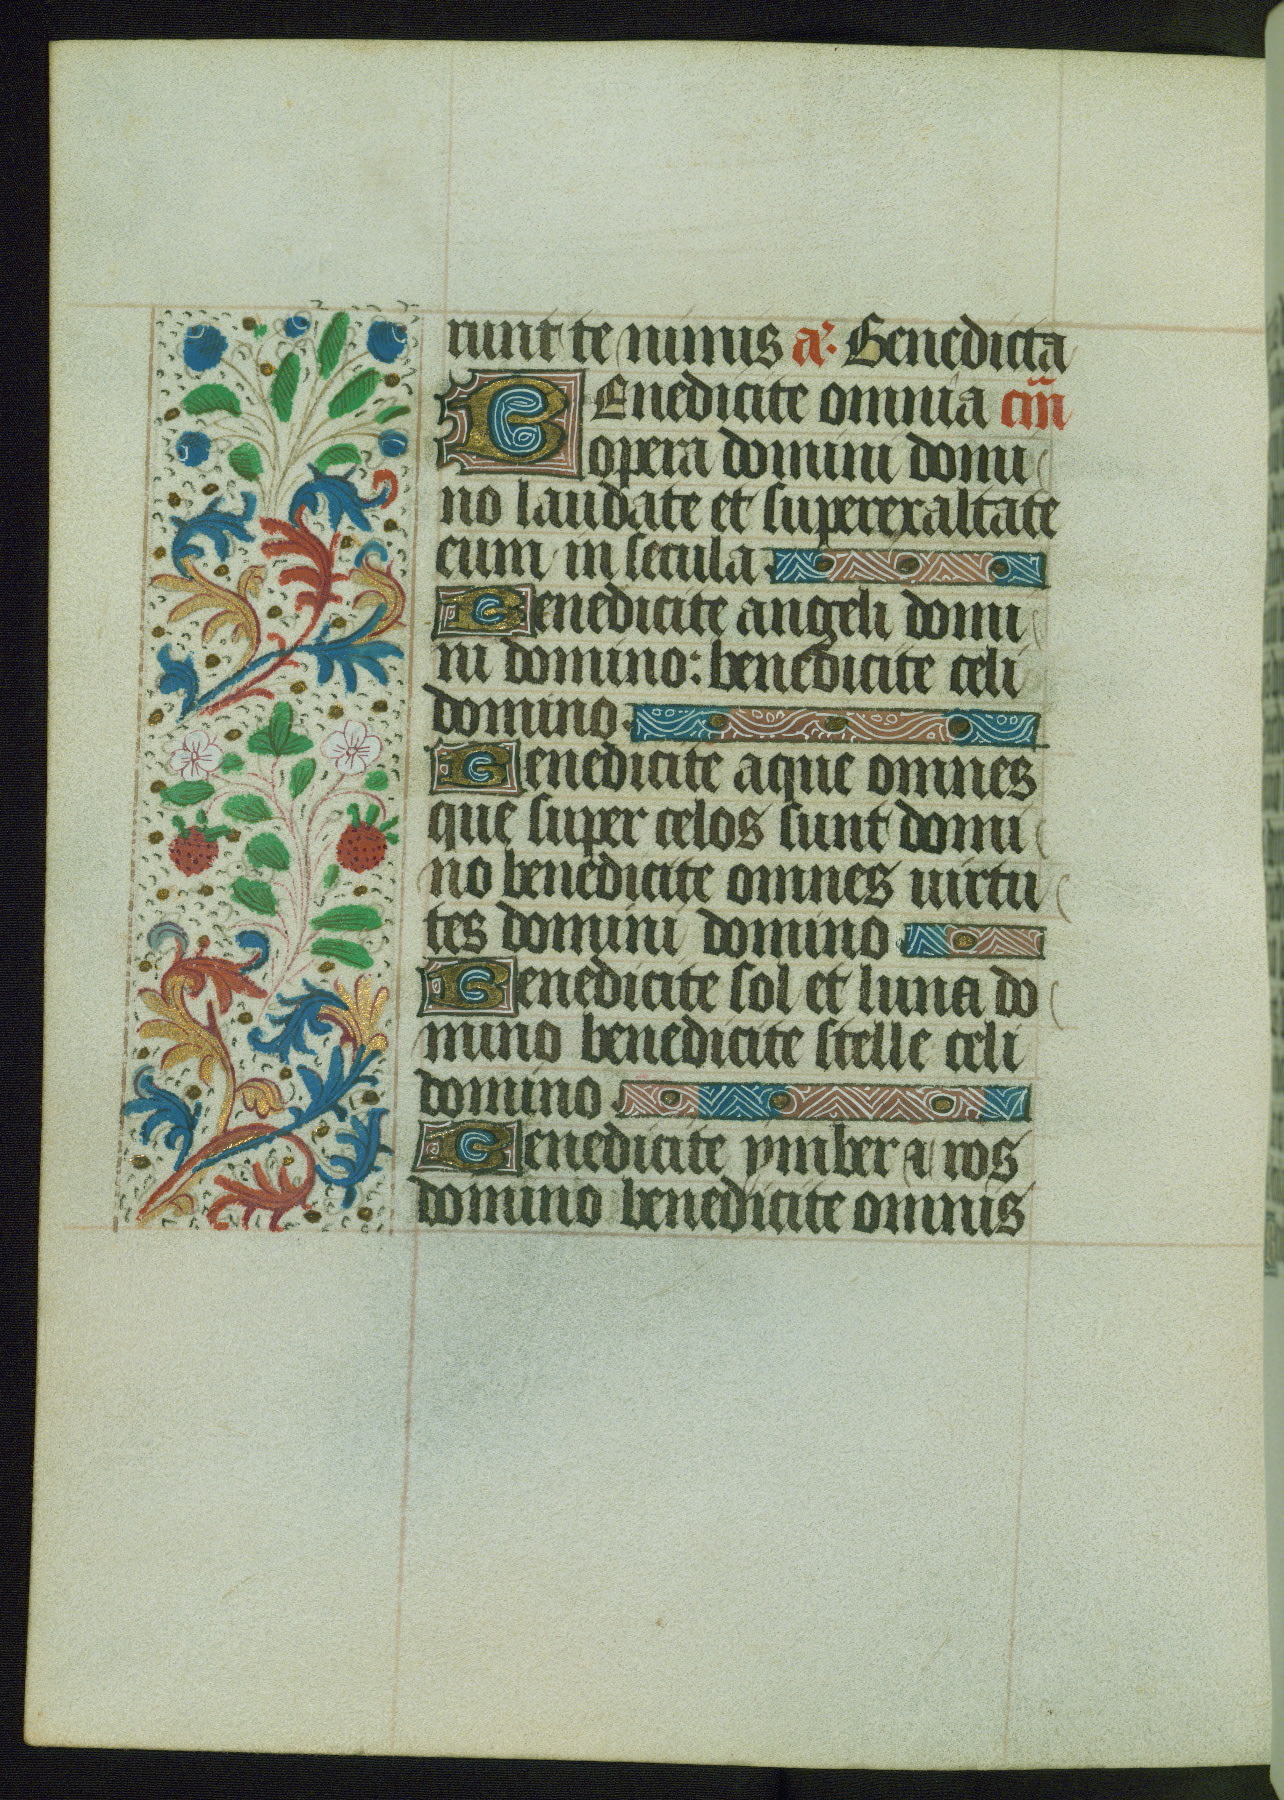 runt te nimis a͂. Benedicta
BEnedicite omnia cm̃
opera domini domi
no laudate et superexaltate
eum in secula
Benedicite angeli domi
ni domino: benedicite celi
domino
Benedicite aque omnes
que super celos sunt domi
no benedicite omnes uirtu
tes domini domino
Benedicite sol et luna do
mino benedicite stelle celi
domino
Benedicite ymber ⁊ ros
domino benedicite omnis